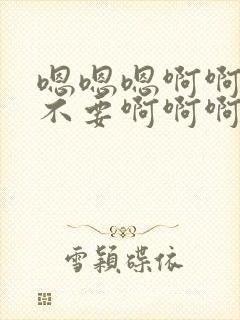 嗯嗯嗯啊啊
不要啊啊啊
雪颖碟依